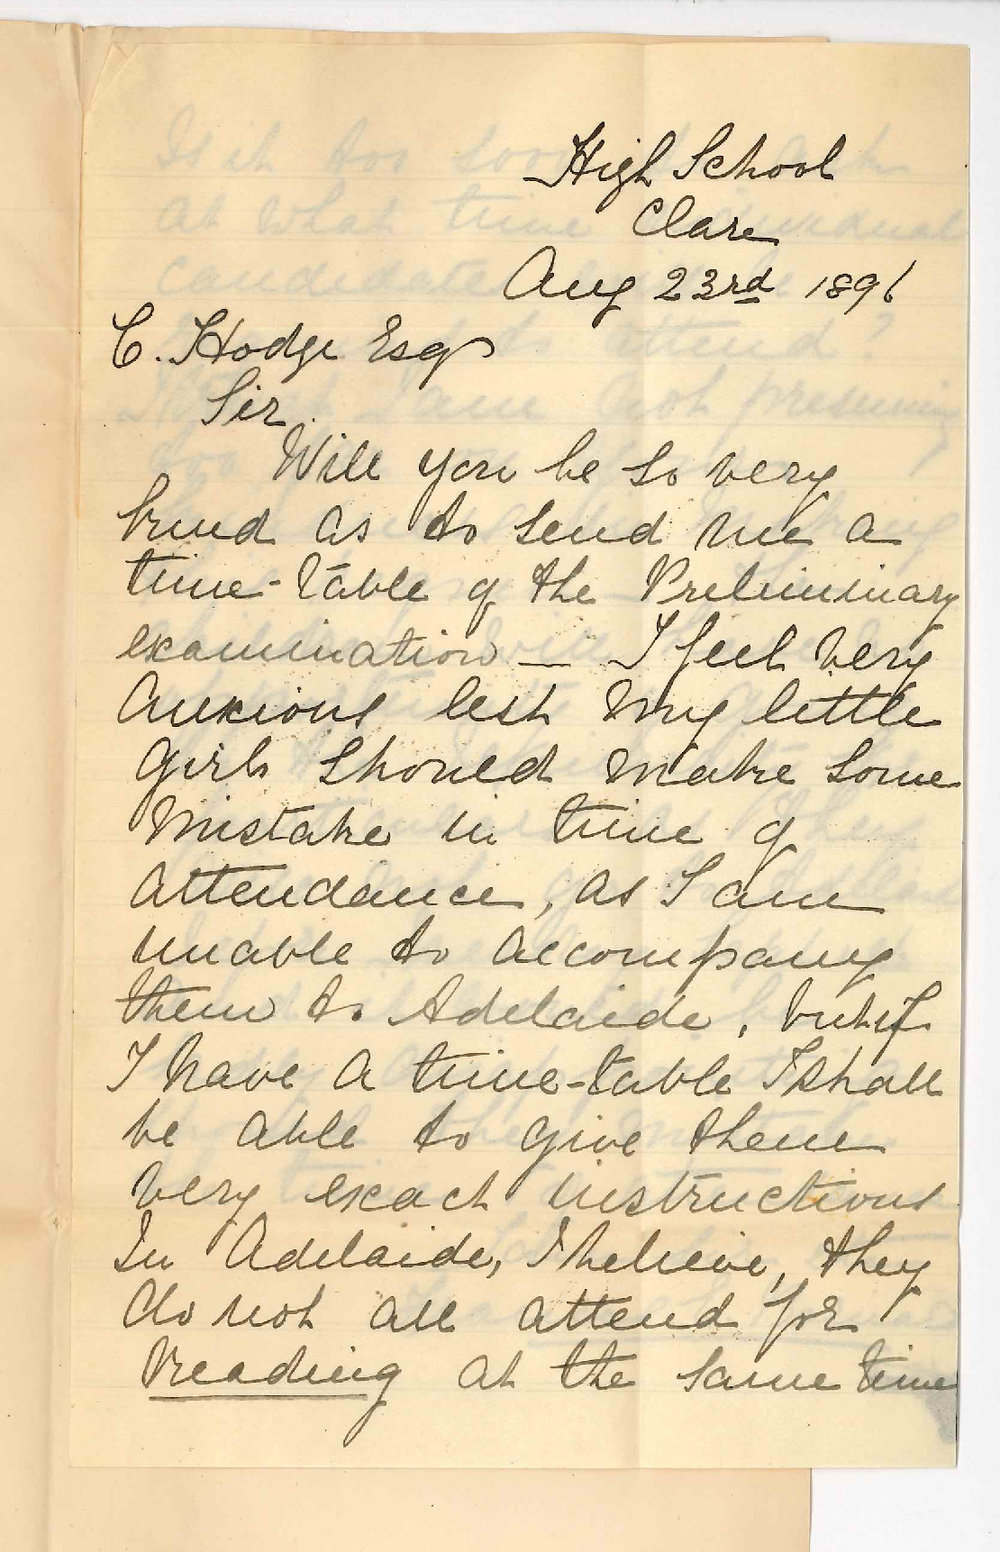 High School
Clare
Aug 23rd 1896
C. Hodge Esq
Sir.
Will you be so very
kind as to send me a
time-table of the Preliminary
examination — I feel very
anxious lest my little
girls should make some
mistake in time of
attendance, as I am
unable to accompany
them to Adelaide, but if
I have a time-table I shall
be able to give them
very exact instructions
In Adelaide, I believe, they
do not all attend for
reading at the same time